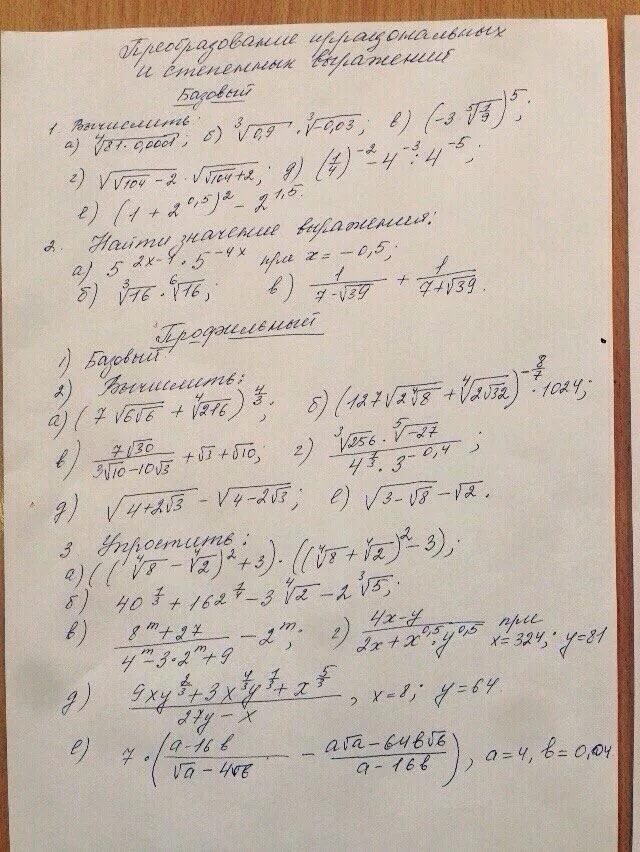 Преобразование иррациональных
и степенных выражений
Базовый
1 Вычислить:
а) ⁴√(81·0,0001); б) ³√0,9 · ³√-0,03; в) (-3 · ⁵√(1/9))⁵;
г) √(√104 - 2) · √(√104 + 2); д) (1/4)⁻² - 4⁻³ : 4⁻⁵;
е) (1 + 2^0,5)² - 2^1,5.
2. Найти значение выражения:
а) 5^(2x-1) · 5^(-4x) при x = -0,5;
б) ³√16 · ⁶√16; в) 1/(7-√39) + 1/(7+√39).
Профильный
1) Базовый
2) Вычислить:
а) (7√(6√6) + ⁴√216)^(4/3); б) (127√(2⁴√8) + ⁴√(2√32))^(-8/7) · 1024;
в) 7√30/(3√10-10√3) + √3 + √10; г) (³√256 · ⁵√-27)/(4^(7/3) · 3^(-0,4));
д) √(4+2√3) - √(4-2√3); е) √(3-√8) - √2.
3 Упростить:
а) ((⁴√8 - ⁴√2)² + 3) · ((⁴√8 + ⁴√2)² - 3);
б) 40^(1/3) + 162^(1/4) - 3⁴√2 - 2³√5;
в) (8^m + 27)/(4^m - 3·2^m + 9) - 2^m; г) (4x-y)/(2x + x^0,5 · y^0,5) при
x = 324; y = 81
д) (9xy^(2/3) + 3x^(4/3)y^(1/3) + x^(5/3))/(27y - x), x = 8; y = 64.
е) 7 · ((a-16b)/(√a-4√b) - (a√a-64b√b)/(a-16b)), a = 4, b = 0,04